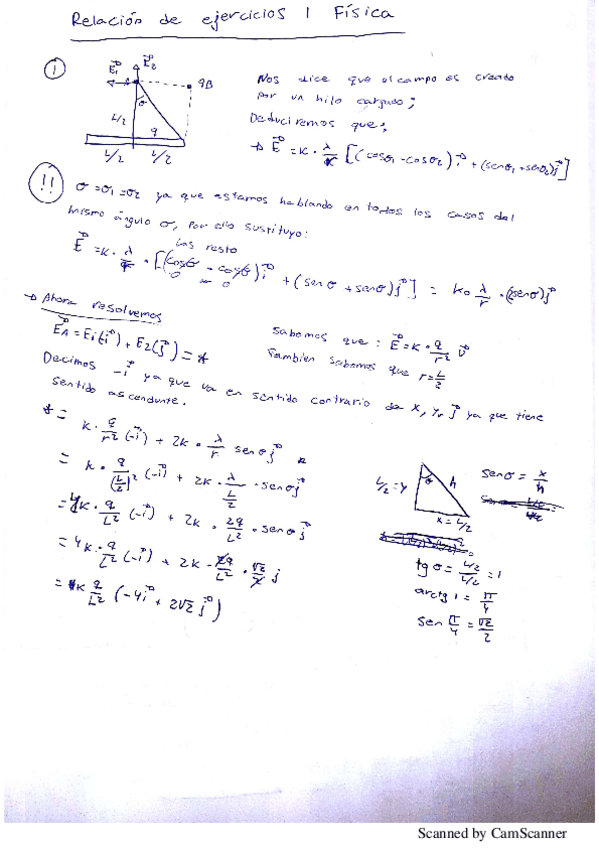 Relación de ejercicios 1 Física
1
E⃗₁ E⃗₂
qB
σ
L/2
q
L/2 L/2
Nos dice que el campo es creado
por un hilo cargado;
Deduciremos que;
→ E⃗ = k · λ/r [(cosσ₁ - cosσ₂) i⃗ + (senσ₁ + senσ₂) j⃗]
!! σ = σ₁ = σ₂ ya que estamos hablando en todos los casos del
mismo ángulo σ, por ello sustituyo:
las resto
E⃗ = k · λ/r · [(cosσ - cosσ) i⃗ + (senσ + senσ) j⃗] = k · λ/r · (senσ) j⃗
0 = 0
→ Ahora resolvemos
E⃗A = E₁(-i⃗) + E₂(j⃗) = *
Sabemos que : E⃗ = k · q/r² U⃗
También sabemos que r = L/2
Decimos -i⃗ ya que va en sentido contrario de x, y, j⃗ ya que tiene
sentido ascendente.
* = k · q/r² (-i⃗) + 2k · λ/r senσ j⃗
= k · q/(L/2)² (-i⃗) + 2k · λ/(L/2) · senσ j⃗
= 4k · q/L² (-i⃗) + 2k · 2q/L² · senσ j⃗
= 4k · q/L² (-i⃗) + 2k · 2q/L² · √2/2 j
= k q/L² (-4i⃗ + 2√2 j⃗)
L/2 = y
σ
h
x = L/2
senσ = x/h
tgσ = (L/2)/(L/2) = 1
arctg 1 = π/4
sen π/4 = √2/2
Scanned by CamScanner